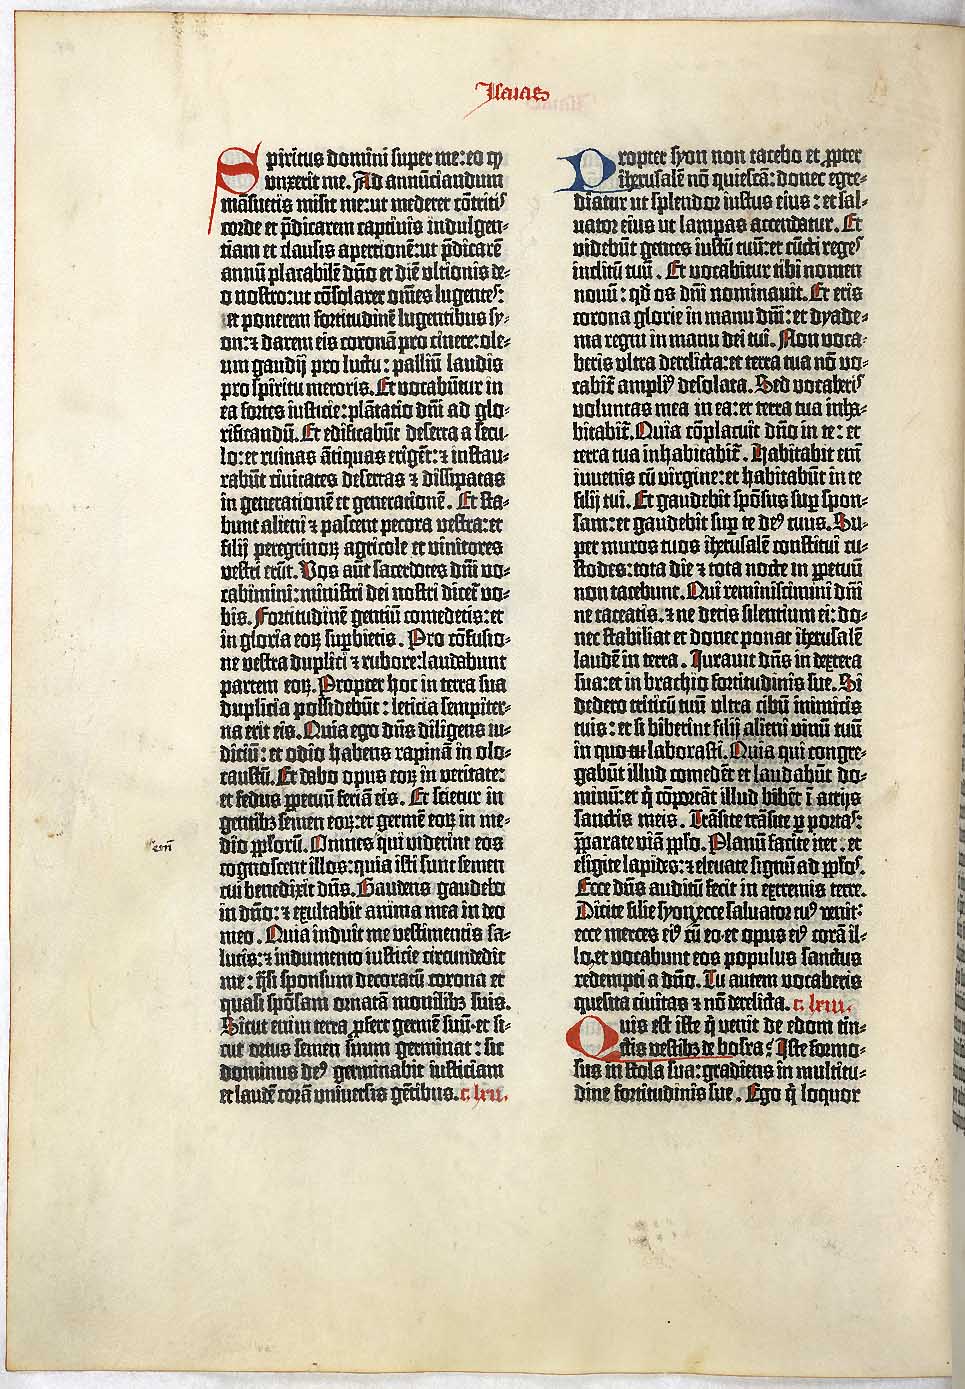 Isaias
Spiritus domini super me: eo ꝙ
unxerit me. Ad annūciandum
māsuetis misit me: ut mederer cōtritis
corde et p̄dicarem captivis indulgen-
tiam et clausis apertionē: ut p̄dicarē
annū placabilē dn̄o et diē ultionis de-
o nostro: ut cōsolarer om̄es lugentes:
et ponerem fortitudinē lugentibus sy-
on: ⁊ darem eis coronā pro cinere: ole-
um gaudij pro luctu: palliū laudis
pro spiritu meroris. Et vocabūtur in
ea fortes iusticie: plātatio dn̄i ad glo-
rificandū. Et edificabūt deserta a secu-
lo: et ruinas ātiquas erigēt: ⁊ instau-
rabūt civitates desertas ⁊ dissipatas
in generationē et generationē. Et sta-
bunt alieni ⁊ pascent pecora vestra: et
filij peregrinoꝝ agricole et vinitores
vestri erūt. Vos aūt sacerdotes dn̄i vo-
cabimini: ministri dei nostri dicet̄ vo-
bis. Fortitudinē gentiū comedetis: et
in gloria eoꝝ suꝑbietis. Pro cōfusio-
ne vestra duplici ⁊ rubore: laudabunt
partem eoꝝ. Propter hoc in terra sua
duplicia possidebūt: leticia sempiter-
na erit eis. Quia ego dn̄s diligens iu-
diciū: et odio habens rapinā in olo-
caustū. Et dabo opus eoꝝ in veritate:
et fedus ꝑpetuū feriā eis. Et scietur in
gentibꝫ semen eoꝝ: et germē eoꝝ in me-
dio pp̄lorū. Omnes qui viderint eos
cognoscent illos: quia isti sunt semen
cui benedixit dn̄s. Gaudens gaudebo
in dn̄o: ⁊ exultabit anima mea in deo
meo. Quia induit me vestimentis sa-
lutis: ⁊ indumento iusticie circundedit
me: q̄si sponsum decoratū corona et
quasi spōsam ornatā monilibꝫ suis.
Sicut enim terra ꝓfert germē suū. et si-
cut ortus semen suum germinat: sic
dominus deꝰ germinabit iusticiam
et laudē corā universis gētibus. c. lxii.
Propter syon non tacebo et ꝓpter
iherusalē nō quiescā: donec egre-
diatur ut splendor iustus eius: et sal-
vator eius ut lampas accendatur. Et
videbūt gentes iustū tuū: et cūcti reges
inclitū tuū. Et vocabitur tibi nomen
novū: qd̄ os dn̄i nominavit. Et eris
corona glorie in manu dn̄i: et dyade-
ma regni in manu dei tui. Non voca-
beris ultra derelicta: et terra tua nō vo-
cabit̄ ampliꝰ desolata. Sed vocaberis
voluntas mea in ea: et terra tua inha-
bitabit̄. Quia cōplacuit dn̄o in te: et
terra tua inhabitabit̄. Habitabit eni̅
iuvenis cū virgine: et habitabūt in te
filij tui. Et gaudebit spōsus suꝑ spon-
sam: et gaudebit suꝑ te deꝰ tuus. Su-
per muros tuos iherusalē constitui cu-
stodes: tota die ⁊ tota nocte in ꝑpetuū
non tacebunt. Qui reminiscimini dn̄i
ne taceatis: ⁊ ne detis silentium ei: do-
nec stabiliat et donec ponat iherusalē
laudē in terra. Iuravit dn̄s in dextera
sua: et in brachio fortitudinis sue. Si
dedero triticū tuū ultra cibū inimicis
tuis: et si biberint filij alieni vinū tuū
in quo tu laborasti. Quia qui congre-
gabūt illud comedēt et laudabūt do-
minū: et q̄ cōportāt illud bibēt ī atrijs
sanctis meis. Trāsite trāsite ꝑ portas:
p̄parate viā pp̄lo. Planū facite iter: et
eligite lapides: ⁊ elevate signū ad pp̄los.
Ecce dn̄s auditū fecit in extremis terre.
Dicite filie syon: ecce salvator tuꝰ venit:
ecce merces eiꝰ cū eo. et opus eiꝰ corā il-
lo. et vocabunt eos populus sanctus
redempti a dn̄o. Tu autem vocaberis
quesita civitas ⁊ nō derelicta. c. lxiii.
Quis est iste q̄ venit de edom tin-
ctis vestibꝫ de bosra? Iste formo-
sus in stola sua: gradiens in multitu-
dine fortitudinis sue. Ego q̄ loquor